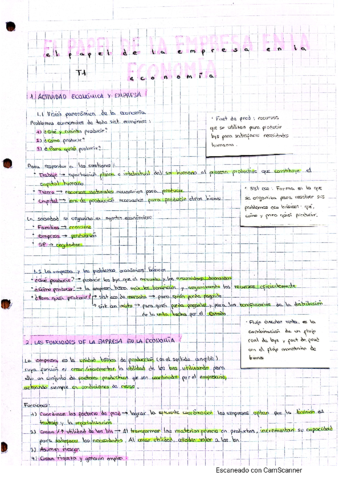 EL PAPEL DE LA EMPRESA EN LA
ECONOMÍA
el papel de la empresa en la
T.1
economía
1. ACTIVIDAD ECONÓMICA Y EMPRESA
1.1 Visión panorámica de la economía
Problemas económicos de toda soc. económica:
1) ¿Qué y cuánto producir?
2) ¿Cómo producir?
3) ¿Para quién producir?
Fact. de prod: recursos
que se utilizan para producir
bys para satisfacer necesidades
humanas.
Para responder a las cuestiones:
Trabajo → aportación física o intelectual del ser humano al proceso productivo que constituye el
capital humano
Tierra → recursos naturales necesarios para producir
Capital → necesarios para producir otros bienes
Sist eco: Forma en la que
se organiza para resolver sus
problemas eco básicos: qué,
cómo y para quién producir.
La sociedad se organiza en agentes económicos:
Familias → consume
Empresas → producción
SP →
1.2 La empresa y los problemas económicos básicos
¿Qué producir? → producir los bys que el mercado
¿Cómo producir? → la empresa recursos eficientemente
¿Para quién producir? → sist de mercado → para quien pueda pagarlo
sist mixto → para quien pueda pagarlo y para de la distribución
de la renta hecha por el Estado
2. LAS FUNCIONES DE LA EMPRESA EN LA ECONOMÍA
La empresa es la unidad básica de producción (en el sentido amplio)
cuya función es crear/incrementar la utilidad de los bs, utilizando para
ello un conjunto de factores productivos que son por el empresario,
actuando siempre en condiciones de riesgo.
Flujo circular renta: es la
combinación de un flujo
real de bys y fact de prod
con el flujo monetario de
Funciones:
1) Coordinar los factores de prod → lograr la las empresas la división del
trabajo y la especialización
2) Crean / ↑ utilidad de los bs → Al transformar las materias primas en productos, incrementan su capacidad
para satisfacer las necesidades. Al crear utilidad, añaden valor a los bs
3) Asumen riesgo
4) Crean riqueza y generan empleo
Escaneado con CamScanner